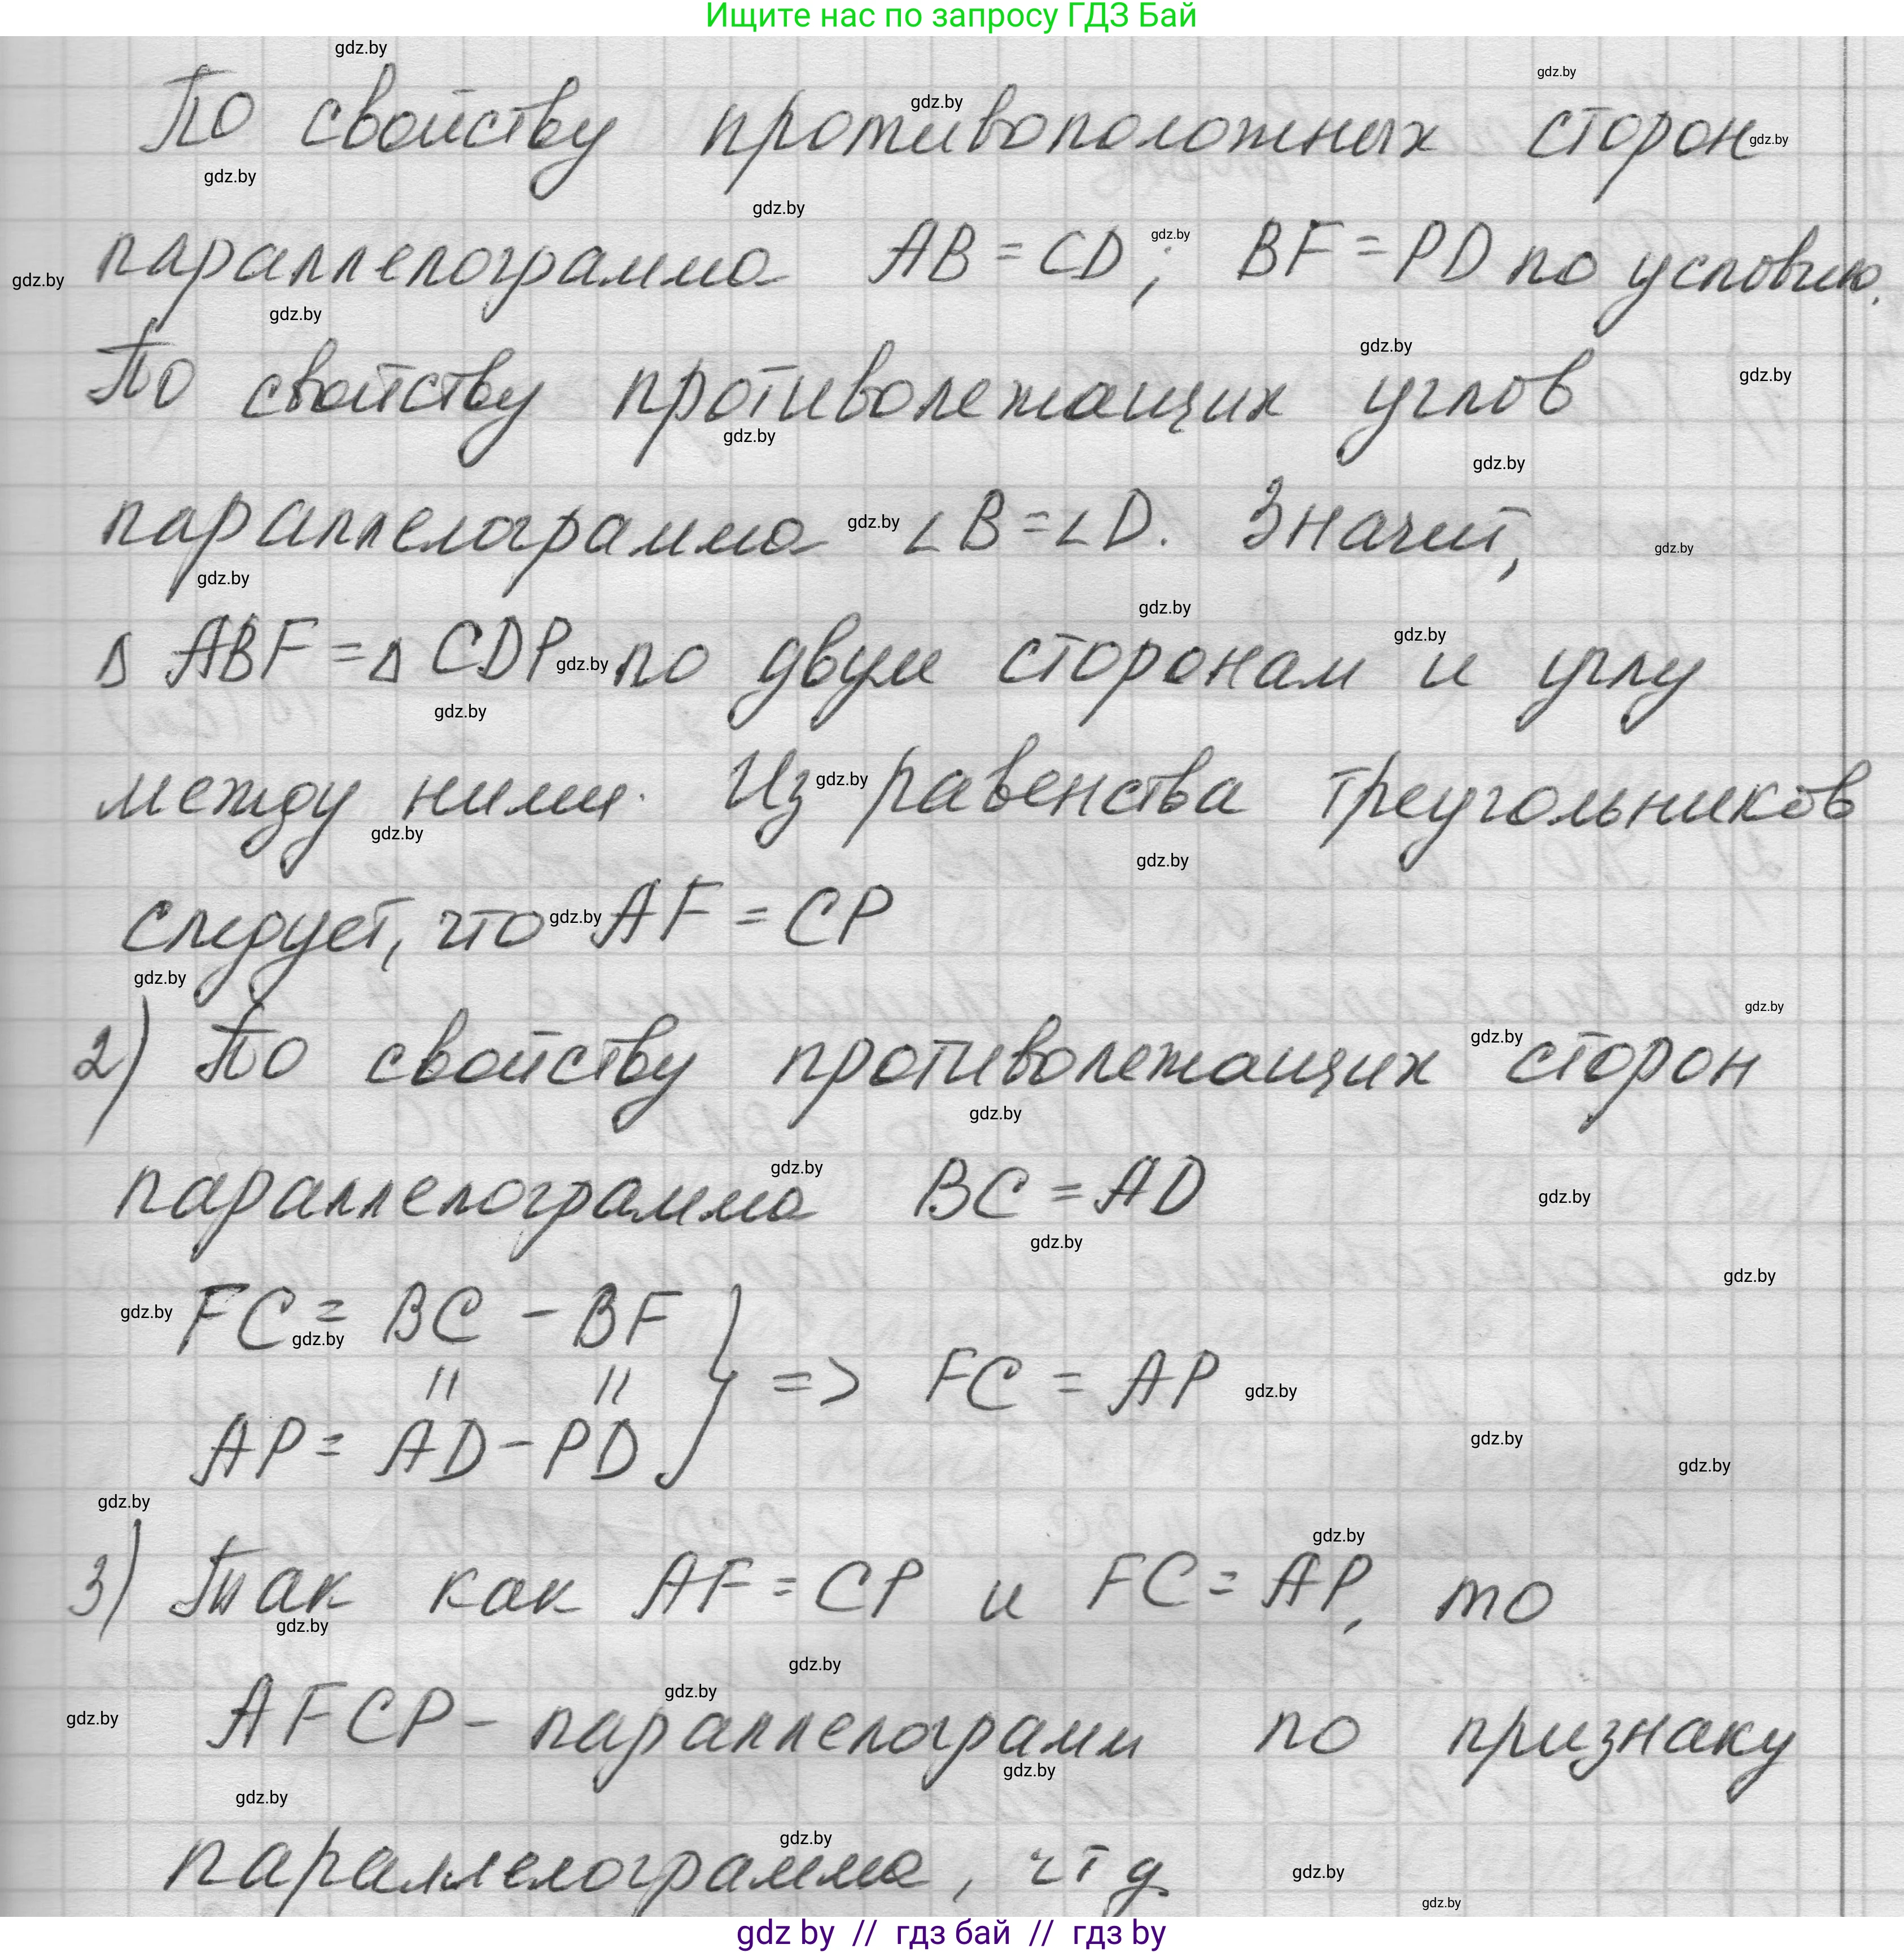 Ищите нас по запросу ГДЗ Бай
По свойству противоположных сторон
параллелограмма AB = CD; BF = PD по условию.
По свойству противолежащих углов
параллелограмма ∠B = ∠D. Значит,
Δ ABF = Δ CDP по двум сторонам и углу
между ними. Из равенства треугольников
следует, что AF = CP
2) По свойству противолежащих сторон
параллелограмма BC = AD
FC = BC - BF
=> FC = AP
AP = AD - PD
3) Так как AF = CP и FC = AP, то
AFCP - параллелограмм по признаку
параллелограмма, чтд
gdz by // гдз бай // гдз by